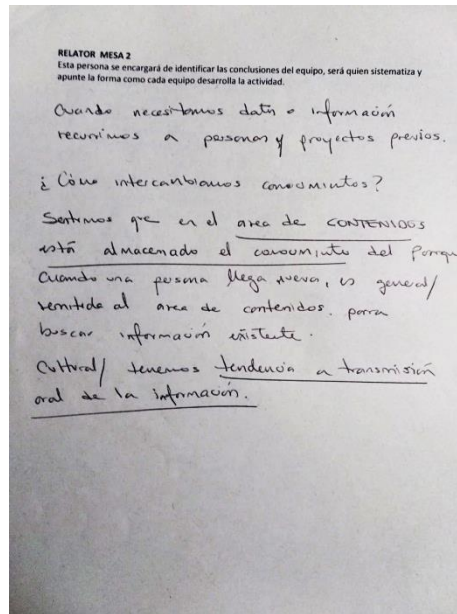 RELATOR MESA 2
Esta persona se encargará de identificar las conclusiones del equipo, será quien sistematiza y
apunte la forma como cada equipo desarrolla la actividad.
Cuando necesitamos datos o información
recurrimos a personas y proyectos previos.
¿Cómo intercambiamos conocimientos?
Sentimos que en el area de CONTENIDOS
está almacenado el conocimiento del Parque
Cuando una persona llega nueva, es general/
remitida al area de contenidos. para
buscar información existente.
Cultural/ tenemos tendencia a transmisión
oral de la información.